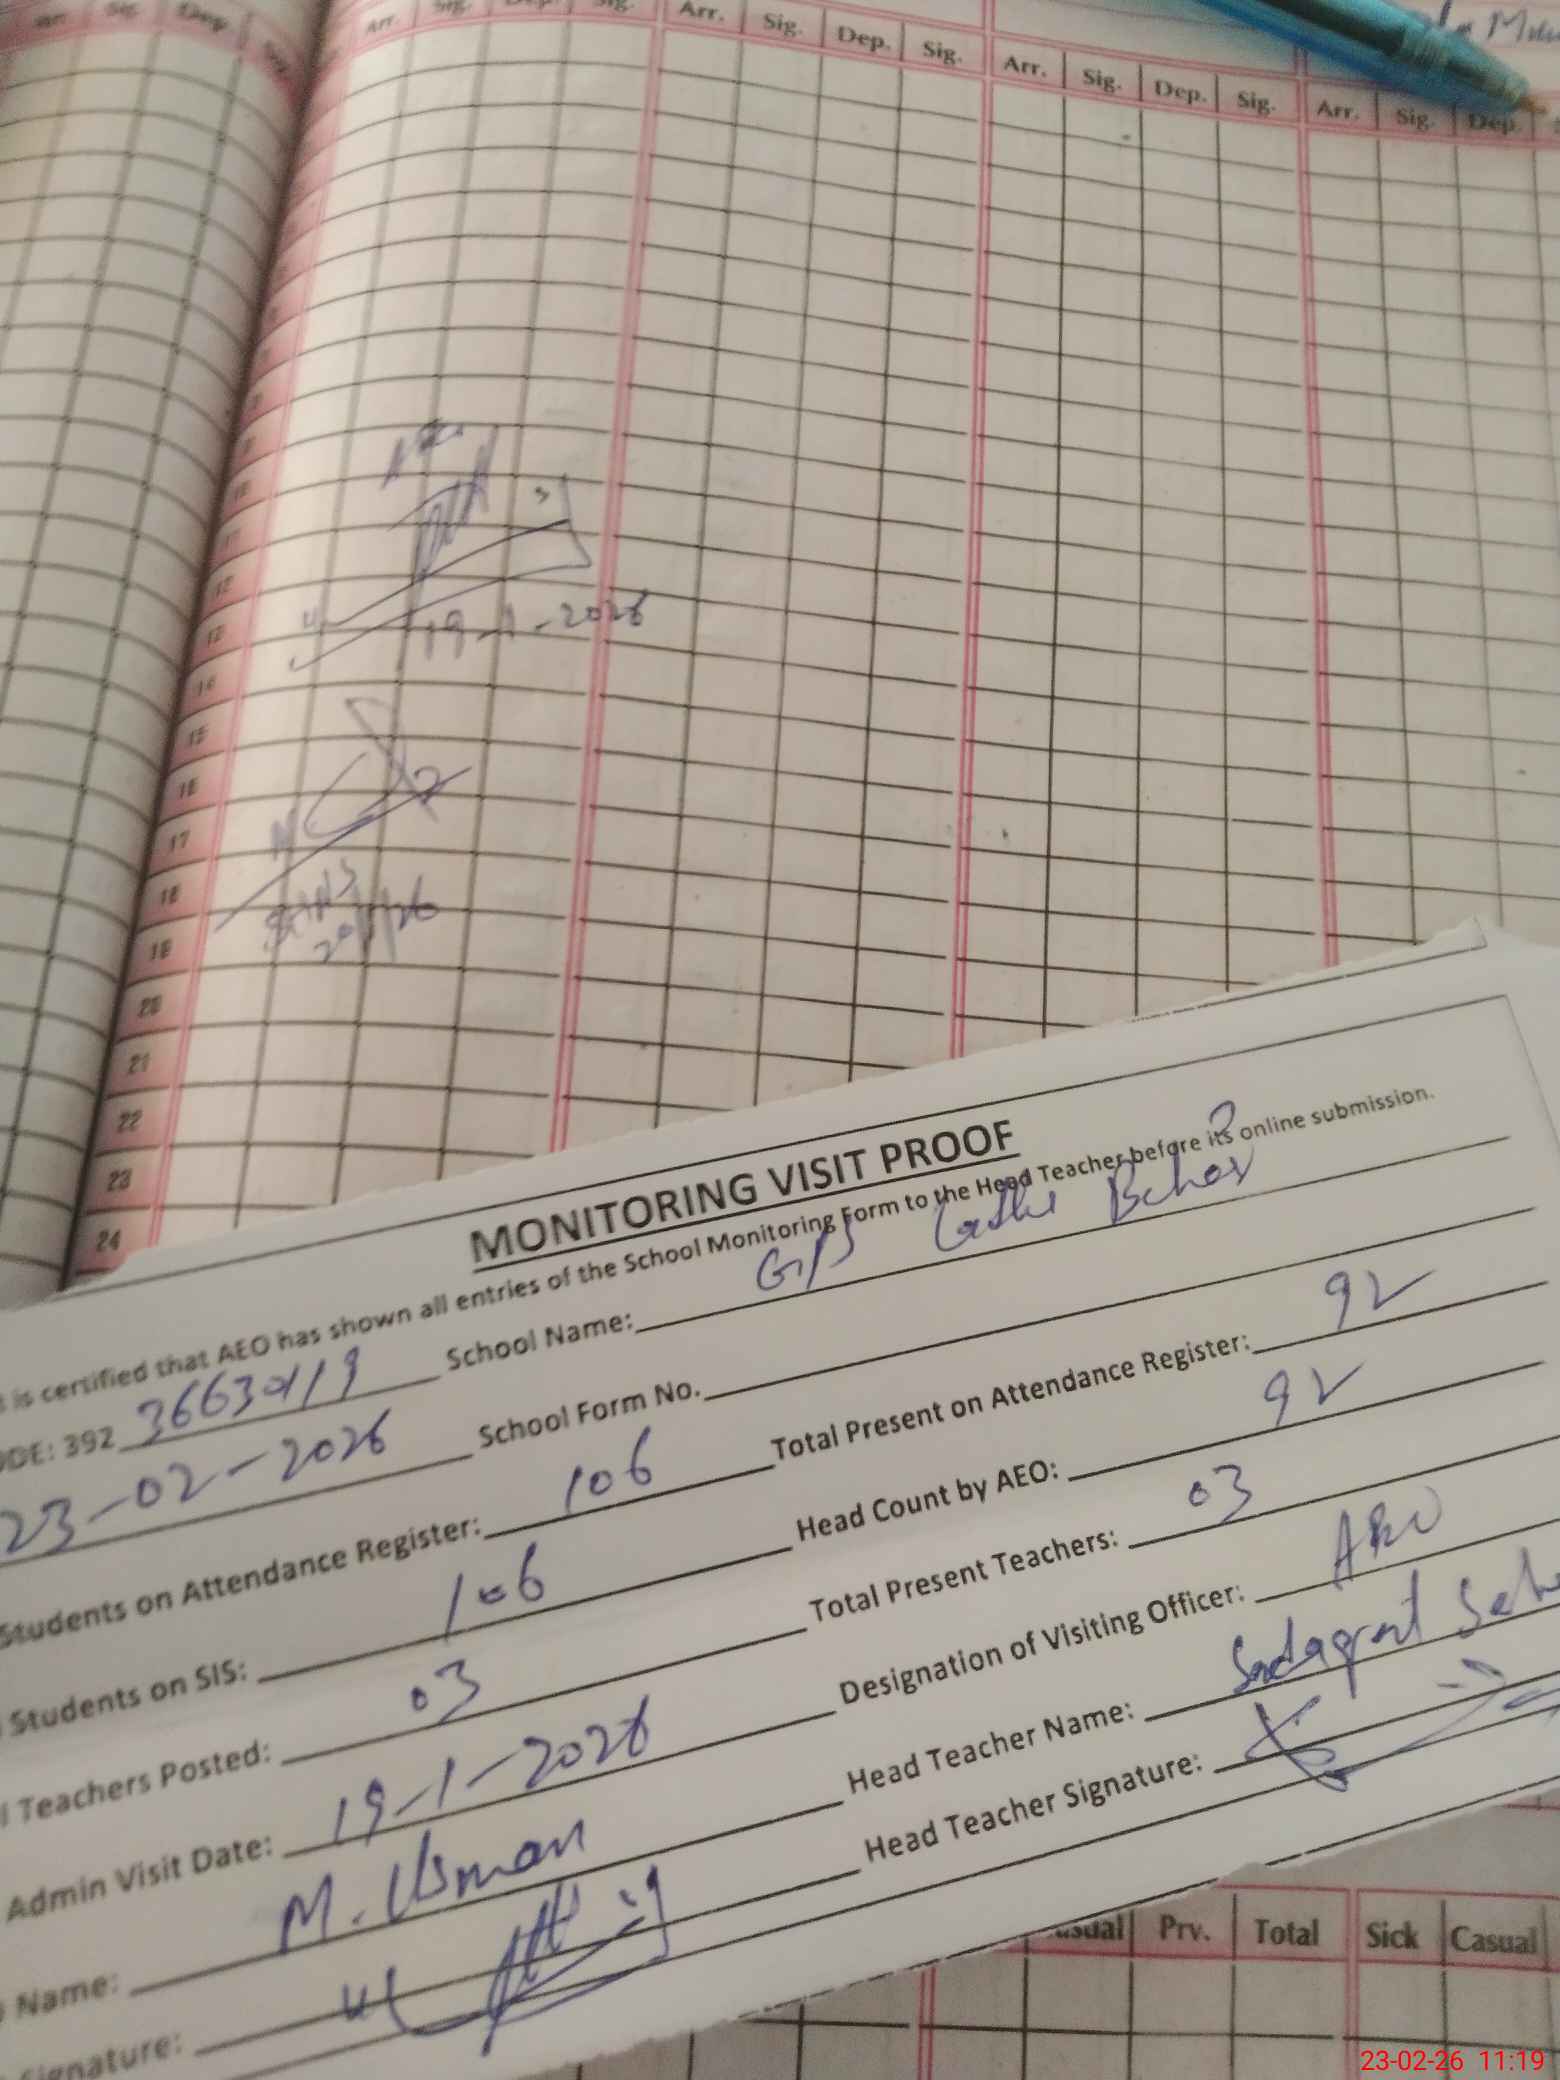 Arr. Sig. Dep. Sig. Arr. Sig. Dep. Sig. Arr. Sig. Dep. Sig. Arr. Sig. Dep. Sig. Arr. Sig. Dep.
10
11
12
13
19-1-2026
14
15
16
17
18
20/1/26
19
20
21
22
23
24
MONITORING VISIT PROOF
t is certified that AEO has shown all entries of the School Monitoring Form to the Head Teacher before its online submission.
ODE: 392 36630119 School Name: GPS Behar
23-02-2026 School Form No.
Students on Attendance Register: 106 Total Present on Attendance Register: 92
Students on SIS: 106 Head Count by AEO: 92
l Teachers Posted: 03 Total Present Teachers: 03
Admin Visit Date: 19-1-2026 Designation of Visiting Officer: AEO
Name: M. Usman Head Teacher Name:
Signature: Head Teacher Signature:
asual Prv. Total Sick Casual
23-02-26 11:19